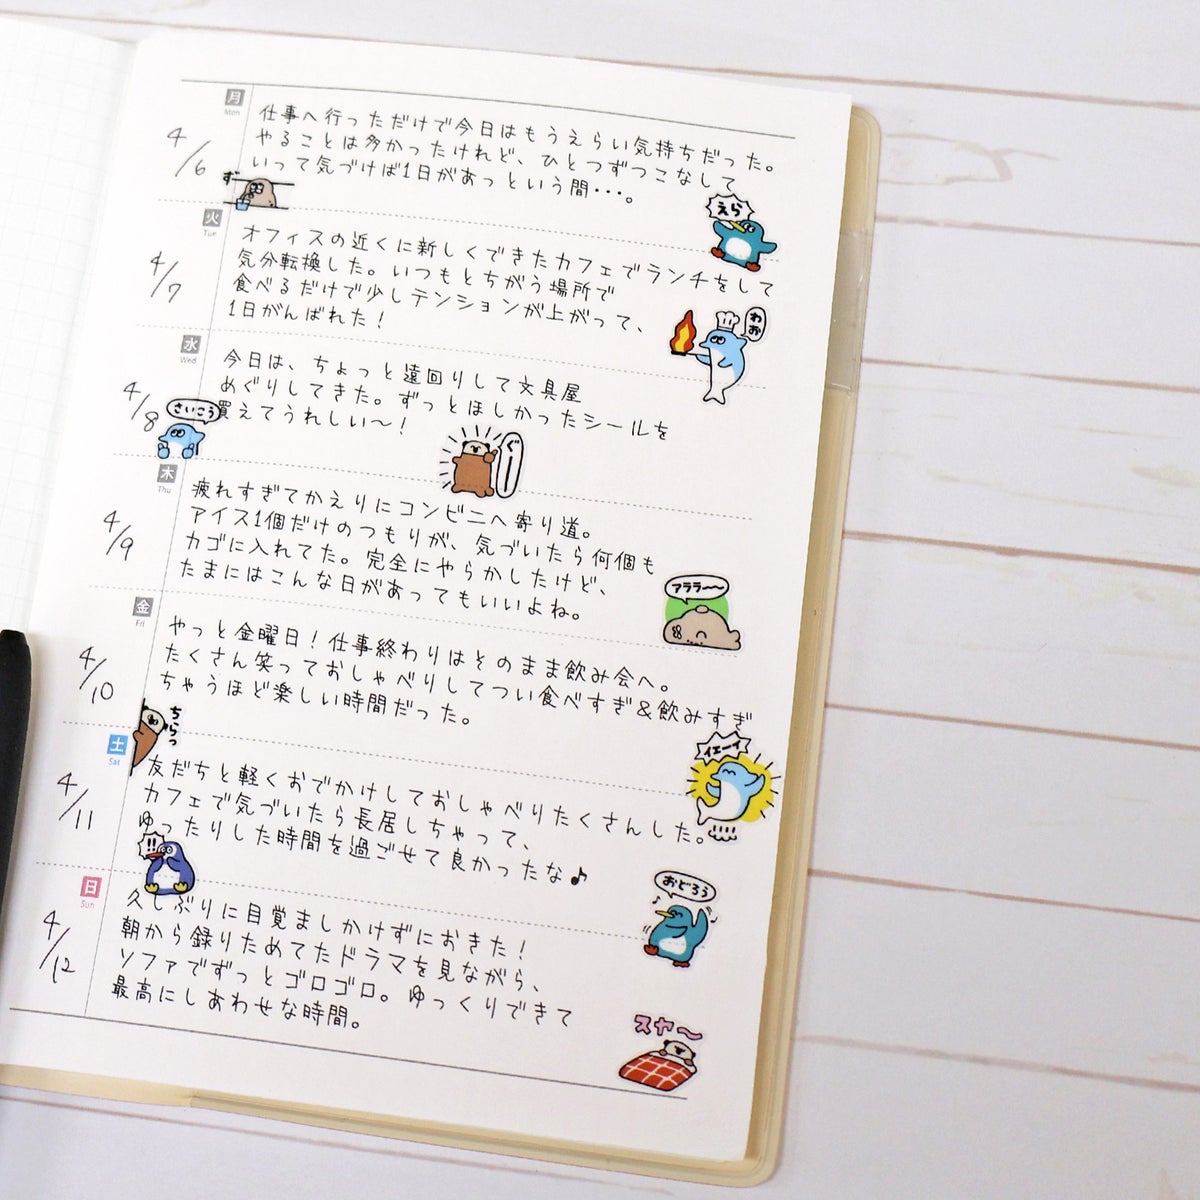 月
Mon
4/6
仕事へ行っただけで今日はもうえらい気持ちだった。
やることは多かったけれど、ひとつずつこなして
いって気づけば1日があっという間・・・。
ず
えら
火
Tue
4/7
オフィスの近くに新しくできたカフェでランチをして
気分転換した。いつもとちがう場所で
食べるだけで少しテンションが上がって、
1日がんばれた!
わお
水
Wed
4/8
今日は、ちょっと遠回りして文具屋
めぐりしてきた。ずっとほしかったシールを
買えてうれしい〜!
さいこう
ぐー
木
Thu
4/9
疲れすぎてかえりにコンビニへ寄り道。
アイス1個だけのつもりが、気づいたら何個も
カゴに入れてた。完全にやらかしたけど、
たまにはこんな日があってもいいよね。
アララ〜
金
Fri
4/10
やっと金曜日!仕事終わりはそのまま飲み会へ。
たくさん笑っておしゃべりしてつい食べすぎ&飲みすぎ
ちゃうほど楽しい時間だった。
ちらっ
イエーイ
土
Sat
4/11
友だちと軽くおでかけしておしゃべりたくさんした。
カフェで気づいたら長居しちゃって、
ゆったりした時間を過ごせて良かったな♪
!!
おどろう
日
Sun
4/12
久しぶりに目覚ましかけずにおきた!
朝から録りためてたドラマを見ながら、
ソファでずっとゴロゴロ。ゆっくりできて
最高にしあわせな時間。
スヤ〜